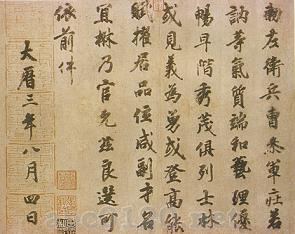 勅左衛兵曹參軍莊若
訥等氣質端和藝理優
暢早階秀茂俱列士林
或見義為勇或登高能
賦擢居品位咸副才名
宜楙乃官允茲良選可
依前件
大曆三年八月四日